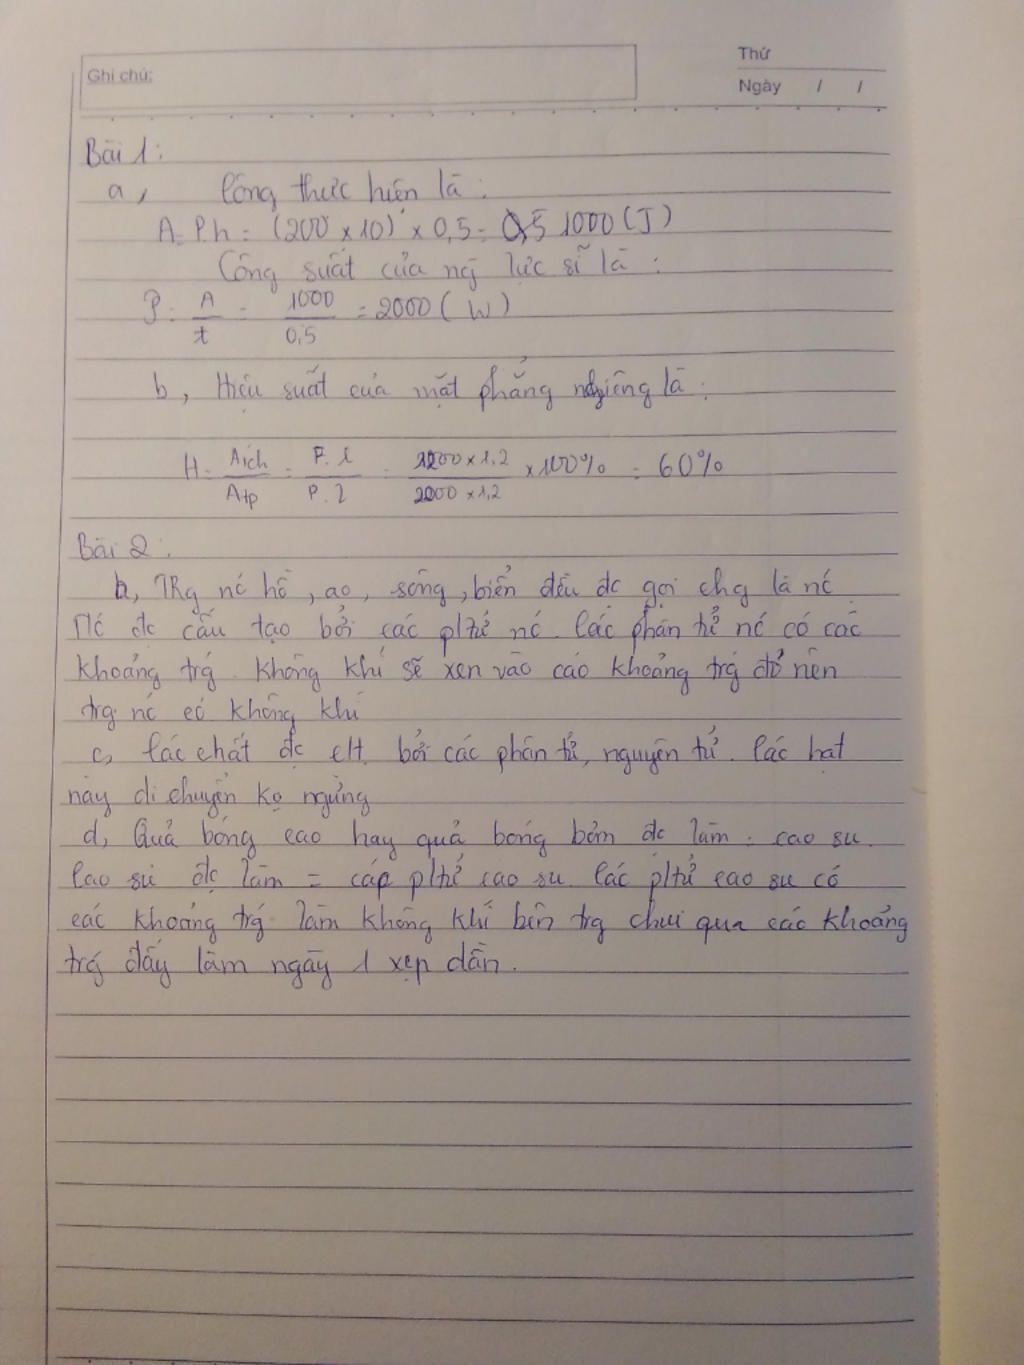 Ghi chú:
Thứ
Ngày / /
Bài 1:
a, Công thực hiện là:
A = P.h = (200 x 10) x 0,5 = 1000 (J)
Công suất của ng lực sĩ là:
P = A/t = 1000/0,5 = 2000 (W)
b, Hiệu suất của mặt phẳng nghiêng là:
H = Aích/Atp = P.l/P.l = 1200x1,2/2000x1,2 x100% = 60%
Bài 2:
b, Trg nc hồ, ao, sông, biển đều đc gọi chg là nc
Nc đc cấu tạo bởi các ptử nc. Các phân tử nc có các
khoảng trg. Không khí sẽ xen vào các khoảng trg đó nên
trg nc có không khí
c, Các chất đc cấu bởi các phân tử, nguyên tử. Các hạt
này di chuyển ko ngừng
d, Quả bóng cao hay quả bóng bơm đc làm = cao su.
Cao su đc làm = các ptử cao su. Các ptử cao su có
các khoảng trg làm không khí bên trg chui qua các khoảng
trg đấy làm ngày 1 xẹp dần.